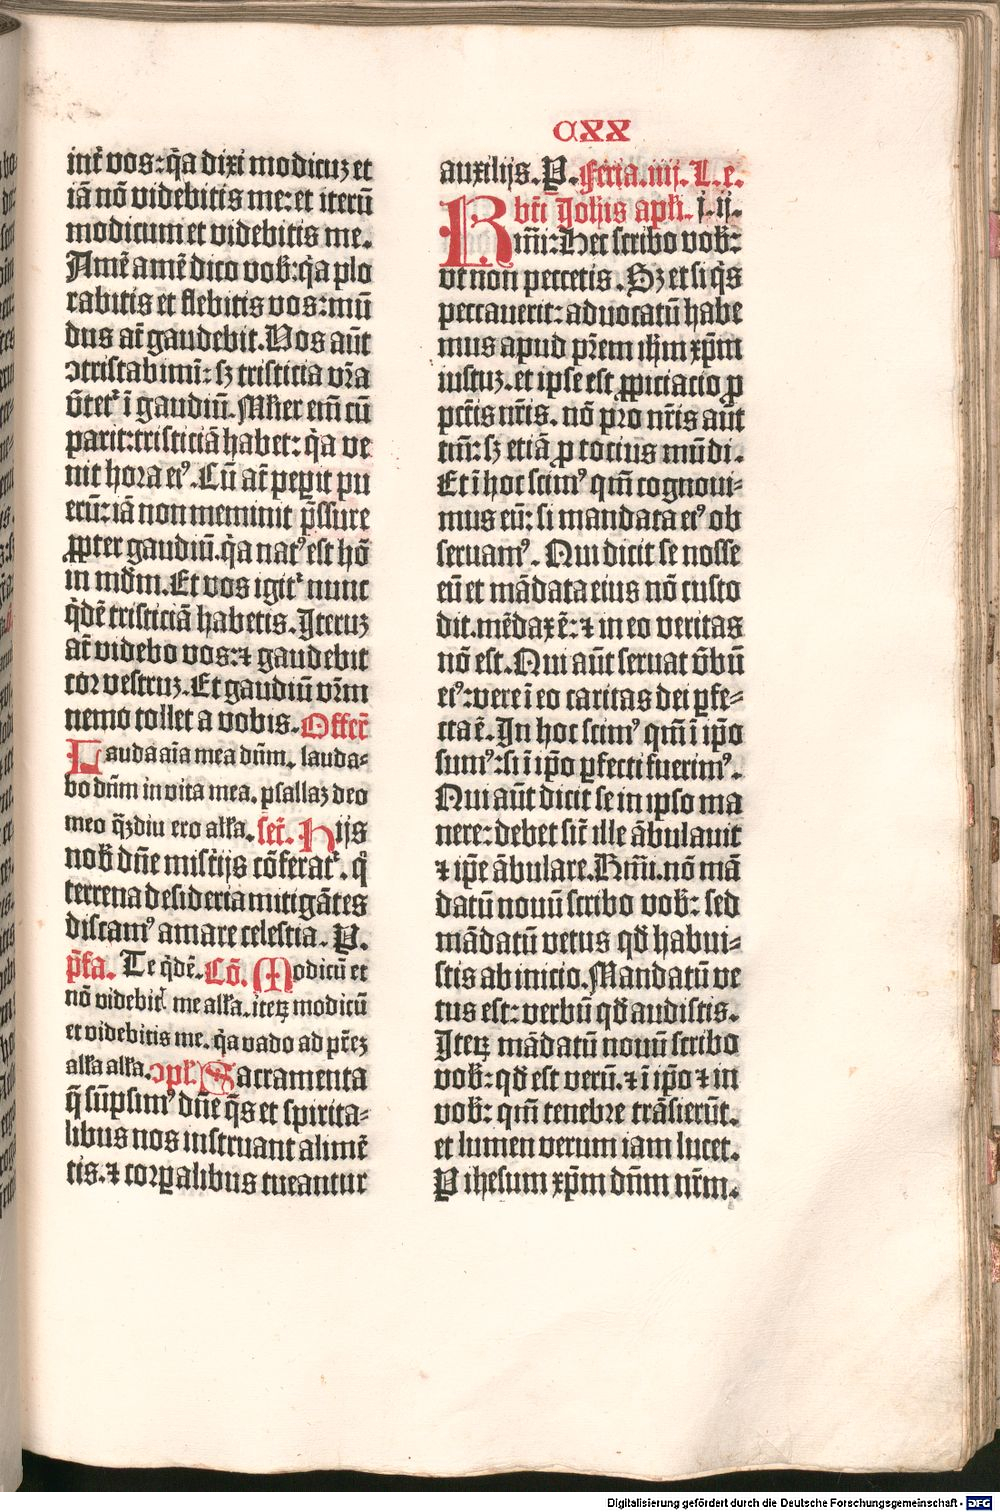 CXX
int̃ vos: q̃a dixi modicuz et
iã nõ videbitis me: et iterũ
modicum et videbitis me.
Amẽ amẽ dico vob̃: q̃a plo
rabitis et flebitis vos: mũ
dus at̃ gaudebit. Vos aũt
ɔtristabimĩ: sz tristicia vr̃a
v̓tetʳ ĩ gaudiũ. Mĺier em̃ cũ
parit: tristiciã habet: q̃a ve
nit hora eiꝰ. Cũ at̃ peꝑit pu
erũ: iã non meminit p̃ssure
ꝓpter gaudiũ. q̃a natꝰ est hõ
in mũdm. Et vos igitʳ nunc
q̃dẽ tristiciã habetis. Iteruz
at̃ videbo vos: ⁊ gaudebit
cor vestruz. Et gaudiũ vr̃m
nemo tollet a vobis. Offert̃
Lauda aĩa mea dñm. lauda⸗
bo dñm in vita mea. psallaz deo
meo q̃zdiu ero alĺa. secr̃. Hijs
nob̃ dñe mist̃ijs cõferatʳ. q̃
terrena desideria mitigãtes
discamꝰ amare celestia. P.
p̃fa. Te q̃dẽ. Cõ. Modicũ et
nõ videbit̃ me alĺa. iteꝝ modicũ
et videbitis me. q̃a vado ad pr̃ez
alĺa alĺa. ɔpl̃. Sacramenta
q̃ sũpsimꝰ dñe q̃s et spirita⸗
libus nos instruant alimẽ
tis. ⁊ corꝑalibus tueantur
auxilijs. P. Feria. iiij. L. e.
bt̃i Joh̃is apl̃i. i. ij.
Rmĩ: Hec scribo vob̃:
vt non peccetis. Sz et si q̃s
peccauerit: aduocatũ habe
mus apud pr̃em ih̃m xp̃m
iustuz. et ipse est ꝓpiciacio ꝓ
pctĩs nr̃is. nõ pro nr̃is aũt
tm̃: sz etiã ꝓ tocius mũdi.
Et ĩ hoc scimꝰ qm̃ cognoui⸗
mus eũ: si mandata eiꝰ ob
seruamꝰ. Qui dicit se nosse
eũ et mãdata eius nõ custo
dit. mẽdax ẽ: ⁊ in eo veritas
nõ est. Qui aũt seruat v̓bũ
eiꝰ: vere ĩ eo caritas dei ꝑfe⸗
cta ẽ. In hoc scimꝰ qm̃ ĩ ip̃o
sumꝰ: si ĩ ip̃o ꝑfecti fuerimꝰ.
Qui aũt dicit se in ipso ma
nere: debet sic̃ ille ãbulauit
⁊ ip̃e ãbulare. Krm̃i. nõ mã
datũ nouũ scribo vob̃: sed
mãdatũ vetus qđ habui⸗
stis ab inicio. Mandatũ ve
tus est: verbũ qđ audistis.
Iteꝝ mãdatũ nouũ scribo
vob̃: qđ est verũ. ⁊ ĩ ip̃o ⁊ in
vob̃: qm̃ tenebre trãsierũt.
et lumen verum iam lucet.
P ihesum xp̃m dñm nr̃m.
Digitalisierung gefördert durch die Deutsche Forschungsgemeinschaft - DFG